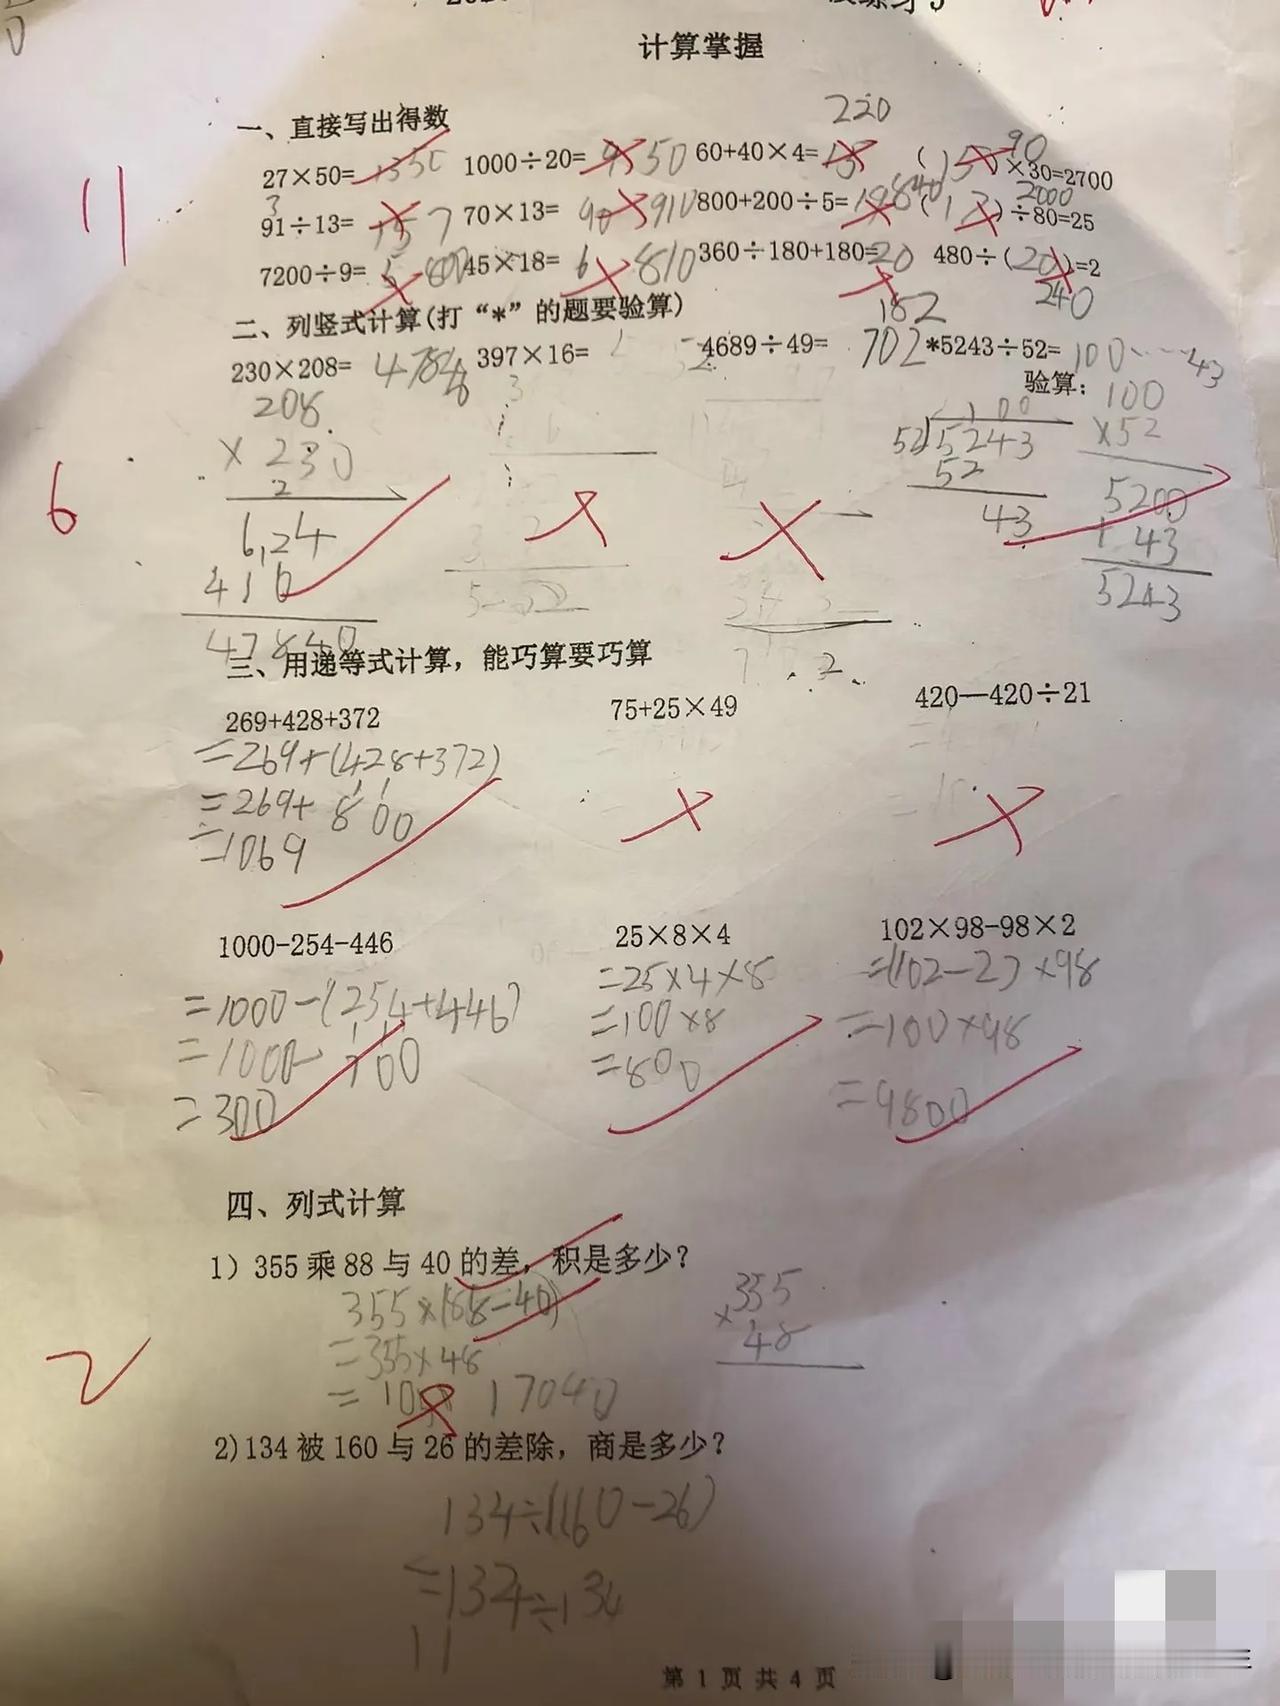 计算掌握
220
一、直接写出得数
27×50=1350 1000÷20= 50 60+40×4= ( )×30=2700 90
11
91÷13= 7 70×13= 910 800+200÷5= 840 ( )÷80=25 2000
7200÷9= 800 45×18= 6 810 360÷180+180=20 480÷(20)=2
182 240
二、列竖式计算(打“*”的题要验算)
230×208= 47840 397×16= 4689÷49= 702 *5243÷52= 100……43
验算: 100
208 100 ×52
×230 52 5243
52 5200
6 624 43 + 43
416 5243
47840
三、用递等式计算，能巧算要巧算
269+428+372 75+25×49 420—420÷21
=269+(428+372)
=269+800
=1069
1000-254-446 25×8×4 102×98-98×2
=1000-(254+446) =25×4×8 =(102-2)×98
=1000-700 =100×8 =100×98
=300 =800 =9800
四、列式计算
1) 355乘88与40的差，积是多少?
355×(88-40) 355
=355×48 ×48
= 17040
2
2)134被160与26的差除，商是多少?
134÷(160-26)
=134÷134
第 1 页 共 4 页